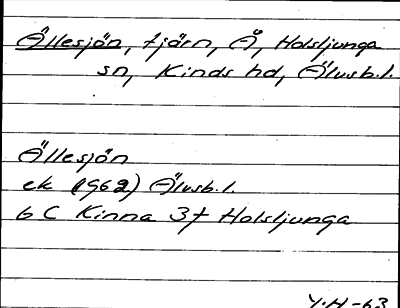 Ällesjön, tjärn, Å, Holsljunga
sn, Kinds hd, Älvsb.l.
Ällesjön
ek (1962) Älvsb.l.
6 C Kinna 3f Holsljunga
Y.H-63